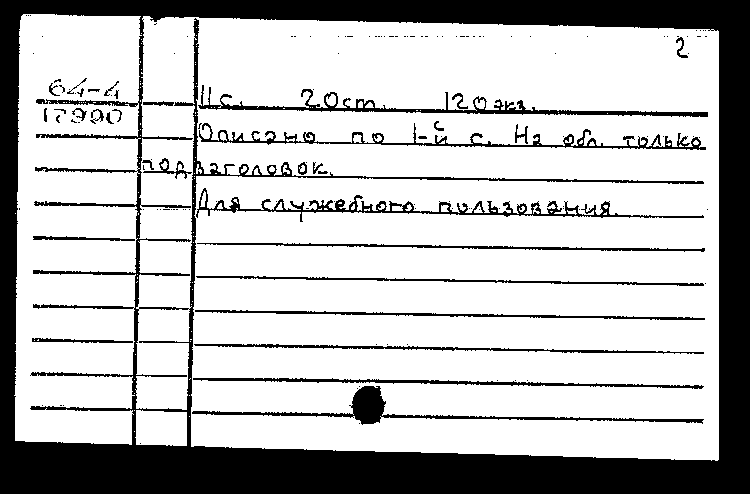 2
64-4
17990
11 с. 20 см. 120 экз.
Описано по 1-й с. На обл. только
подзаголовок.
Для служебного пользования.